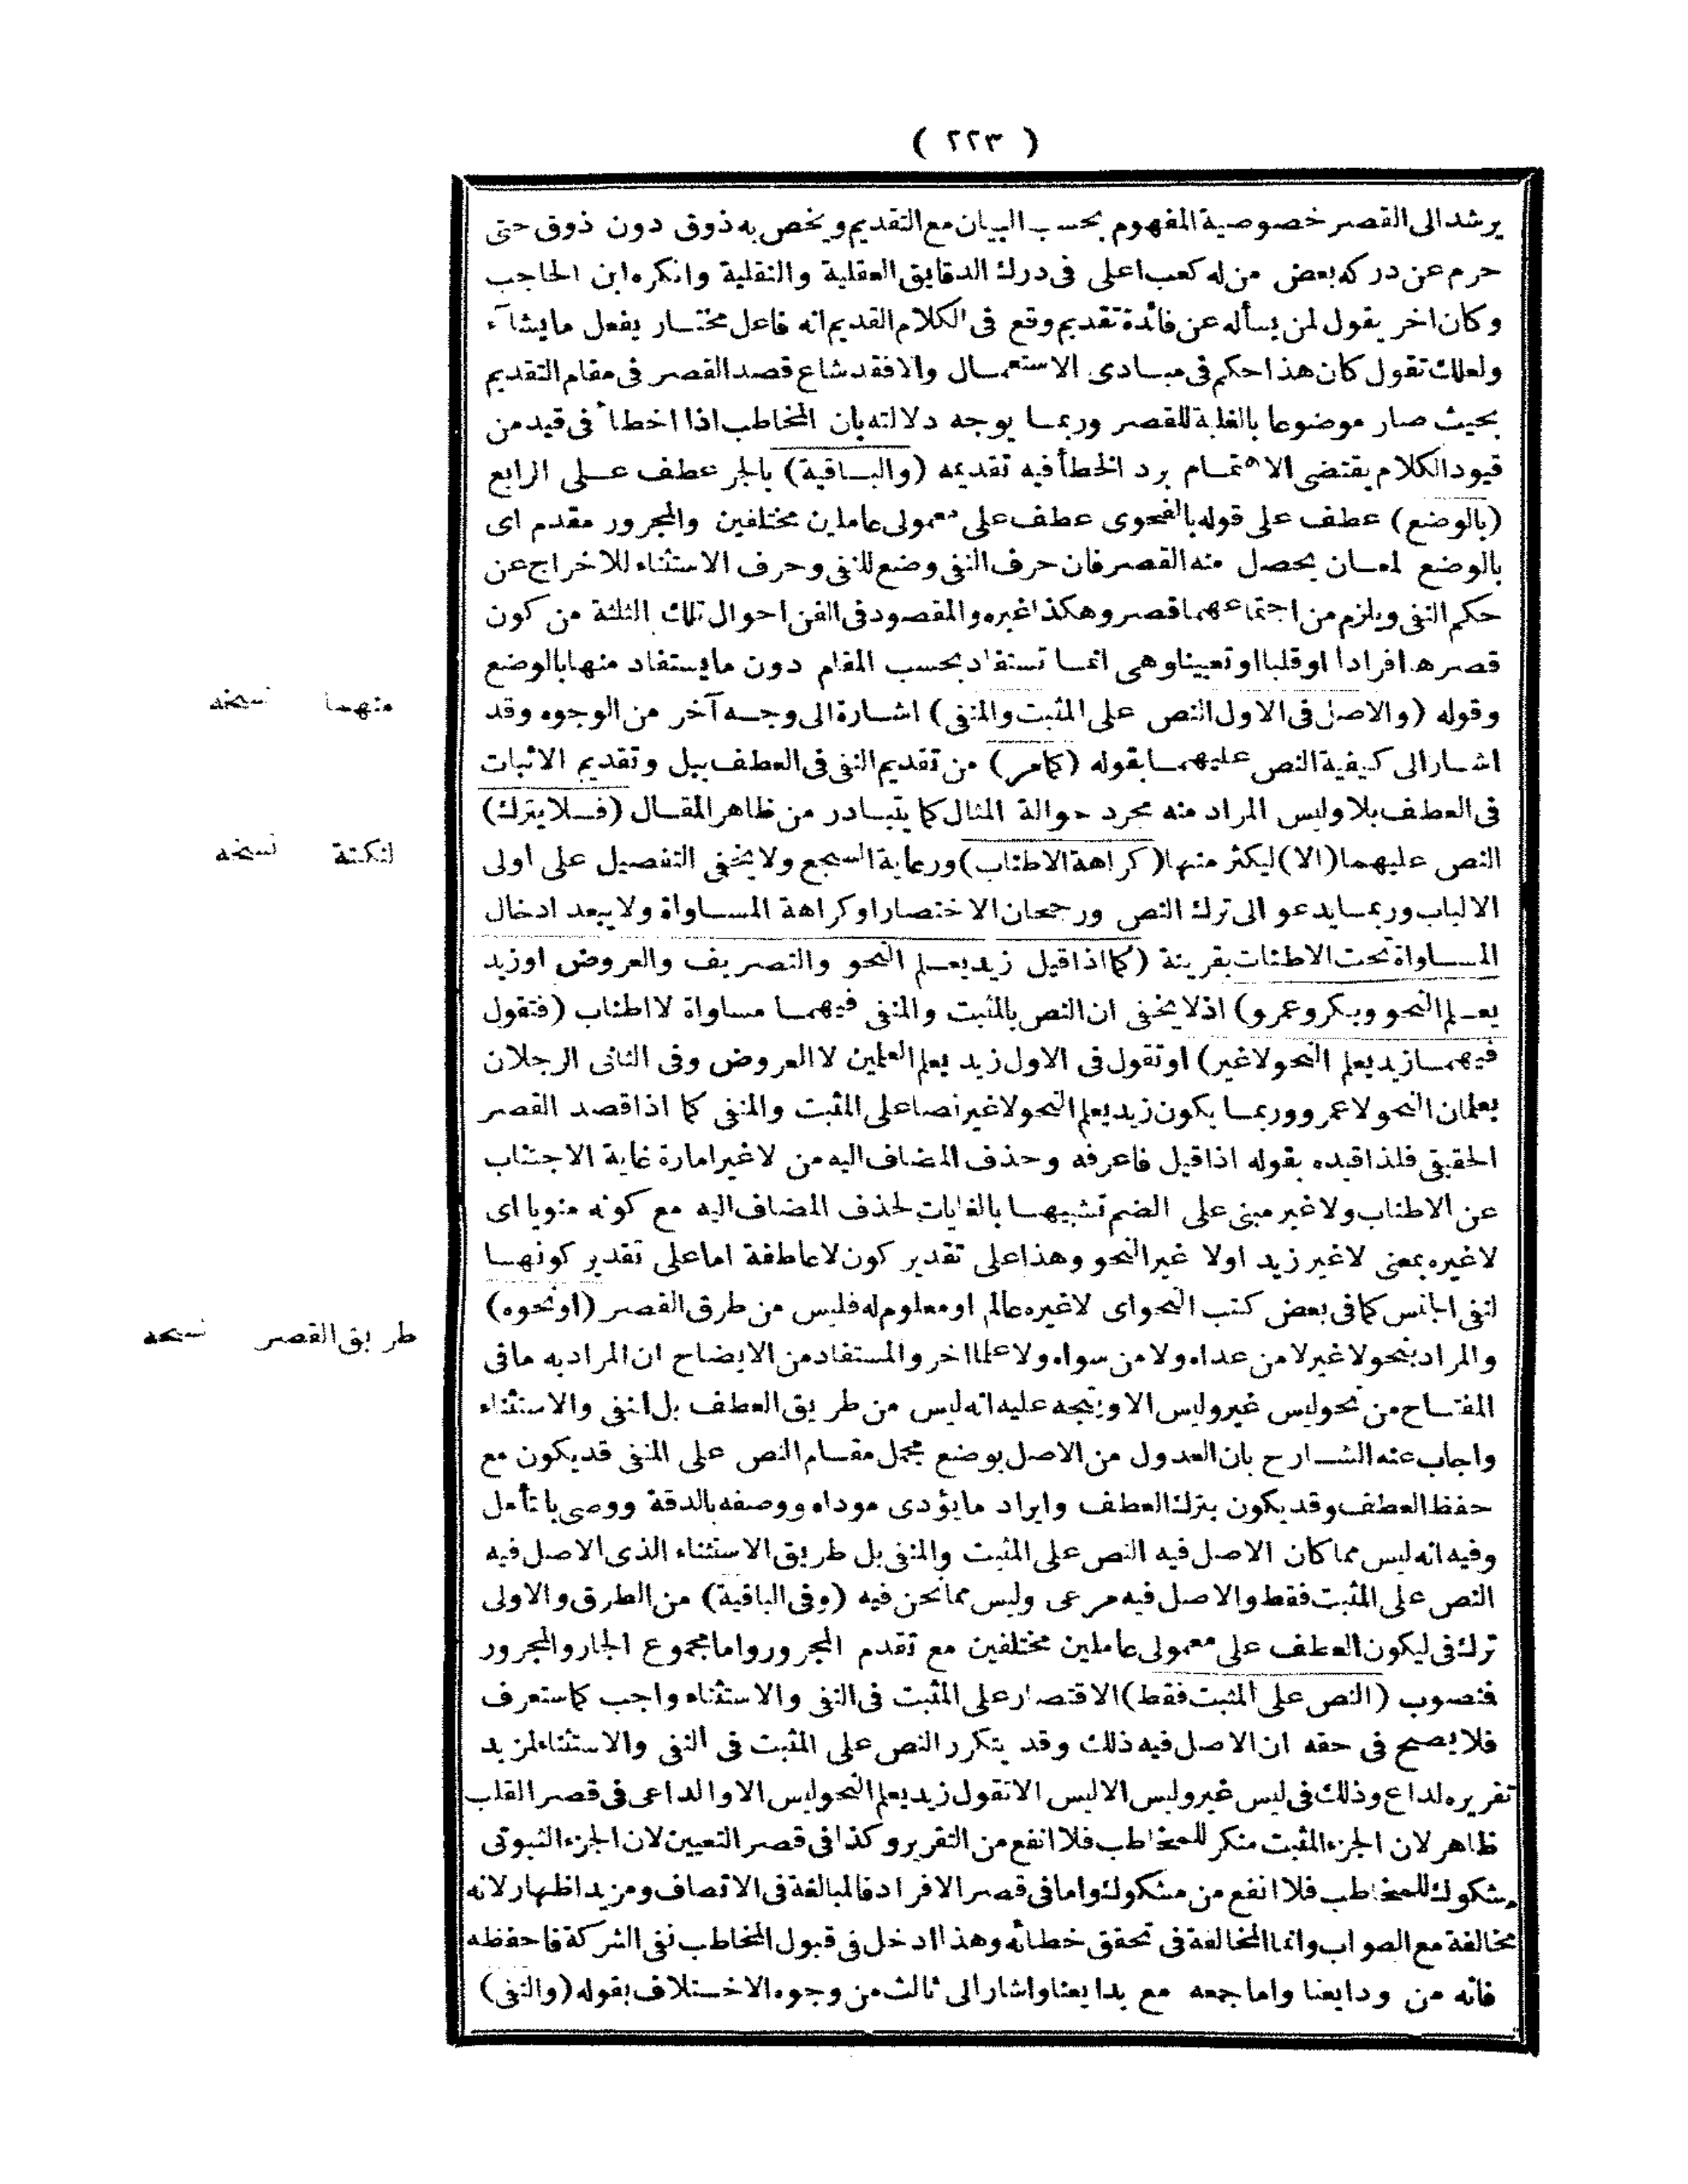 ( ٢٢٣ )
يرشد الى القصر خصوصية المفهوم بحسب البيان مع التقديم ويخص به ذوق دون ذوق حتى
حرم عن دركه بعض من له كعب اعلى فى درك الدقايق العقلية والنقلية وانكره ابن الحاجب
وكان اخر يقول لمن يسأله عن فائدة تقديم وقع فى الكلام القديم انه فاعل مختار يفعل ما يشآء
ولعلك تقول كان هذا حكم فى مبادى الاستعمال والا فقد شاع قصد القصر فى مقام التقديم
بحيث صار موضوعا بالغلبة للقصر وربما يوجه دلالته بان المخاطب اذا اخطأ فى قيد من
قيود الكلام يقتضى الاهتمام برد الخطأ فيه تقديمه (والباقية) بالجر عطف على الرابع
(بالوضع) عطف على قوله بالفحوى عطف على معمولى عاملين مختلفين والمجرور مقدم اى
بالوضع لمعان يحصل منه القصر فان حرف النفى وضع للنفى وحرف الاستثناء للاخراج عن
حكم النفى ويلزم من اجتماعهما قصر وهكذا غيره والمقصود فى الفن احوال تلك الثلثة من كون
قصرها افرادا او قلبا او تعيينا وهى انما تستفاد بحسب المقام دون ما يستفاد منها بالوضع
وقوله (والاصل فى الاول النص على المثبت والمنفى) اشارة الى وجه آخر من الوجوه وقد
منهما نسخه
اشار الى كيفية النص عليهما بقوله (كمامر) من تقديم النفى فى العطف ببل وتقديم الاثبات
فى العطف بلا وليس المراد منه مجرد حوالة المثال كما يتبادر من ظاهر المقال (فلا يترك)
النص عليهما (الا) ليكثر منها (كراهة الاطناب) ورعاية السجع ولا يخفى التفصيل على اولى
لنكتة نسخه
الالباب وربما يدعو الى ترك النص ورجحان الاختصار او كراهة المساواة ولا يبعد ادخال
المساواة تحت الاطناب بقرينة (كما اذا قيل زيد يعلم النحو والتصريف والعروض او زيد
يعلم النحو وبكر وعمرو) اذ لا يخفى ان النص بالمثبت والمنفى فيهما مساواة لا اطناب (فتقول
فيهما زيد يعلم النحو لا غير) او تقول فى الاول زيد يعلم العلمين لا العروض وفى الثانى الرجلان
يعلمان النحو لا عمرو وربما يكون زيد يعلم النحو لا غير نصا على المثبت والمنفى كما اذا قصد القصر
الحقيقى فلذا قيده بقوله اذا قيل فاعرفه وحذف المضاف اليه من لا غير امارة غاية الاجتناب
عن الاطناب ولا غير مبنى على الضم تشبيها بالغايات لحذف المضاف اليه مع كونه منويا اى
لا غيره بمعنى لا غير زيد او لا غير النحو وهذا على تقدير كون لا عاطفة اما على تقدير كونها
لنفى الجنس كما فى بعض كتب النحو اى لا غيره عالم او معلوم له فليس من طرق القصر (او نحوه)
طريق القصر نسخه
والمراد بنحو لا غير لا من عداه ولا من سواه ولا علما اخر والمستفاد من الايضاح ان المراد به ما فى
المفتاح من نحو ليس غير وليس الا ويتجه عليه انه ليس من طريق العطف بل النفى والاستثناء
واجاب عنه الشارح بان العدول من الاصل بوضع مجمل مقام النص على المنفى قد يكون مع
حفظ العطف وقد يكون بترك العطف وايراد ما يؤدى موداه ووصفه بالدقة ووصى بالتأمل
وفيه انه ليس مما كان الاصل فيه النص على المثبت والمنفى بل طريق الاستثناء الذى الاصل فيه
النص على المثبت فقط والاصل فيه مرعى وليس مما نحن فيه (وفى الباقية) من الطرق والاولى
ترك فى ليكون العطف على معمولى عاملين مختلفين مع تقدم المجرور واما مجموع الجار والمجرور
فنصوب (النص على المثبت فقط) الاقتصار على المثبت فى النفى والاستثناء واجب كما ستعرف
فلا يصح فى حقه ان الاصل فيه ذلك وقد يتكرر النص على المثبت فى النفى والاستثناء لمزيد
تقريره لداع وذلك فى ليس غير وليس الا ليس الا تقول زيد يعلم النحو ليس الا والداعى فى قصر القلب
ظاهر لان الجزء المثبت منكر للمخاطب فلا انفع من التقرير وكذا فى قصر التعيين لان الجزء الثبوتى
مشكوك للمخاطب فلا انفع من مشكوك واما فى قصر الافراد فالمبالغة فى الاتصاف ومزيد اظهار لانه
مخالفة مع الصواب وانما المخالفة فى تحقق خطائه وهذا ادخل فى قبول المخاطب نفى الشركة فاحفظه
فانه من ودايعنا واما جمعه مع بدايعنا واشار الى ثالث من وجوه الاختلاف بقوله (والنفى)